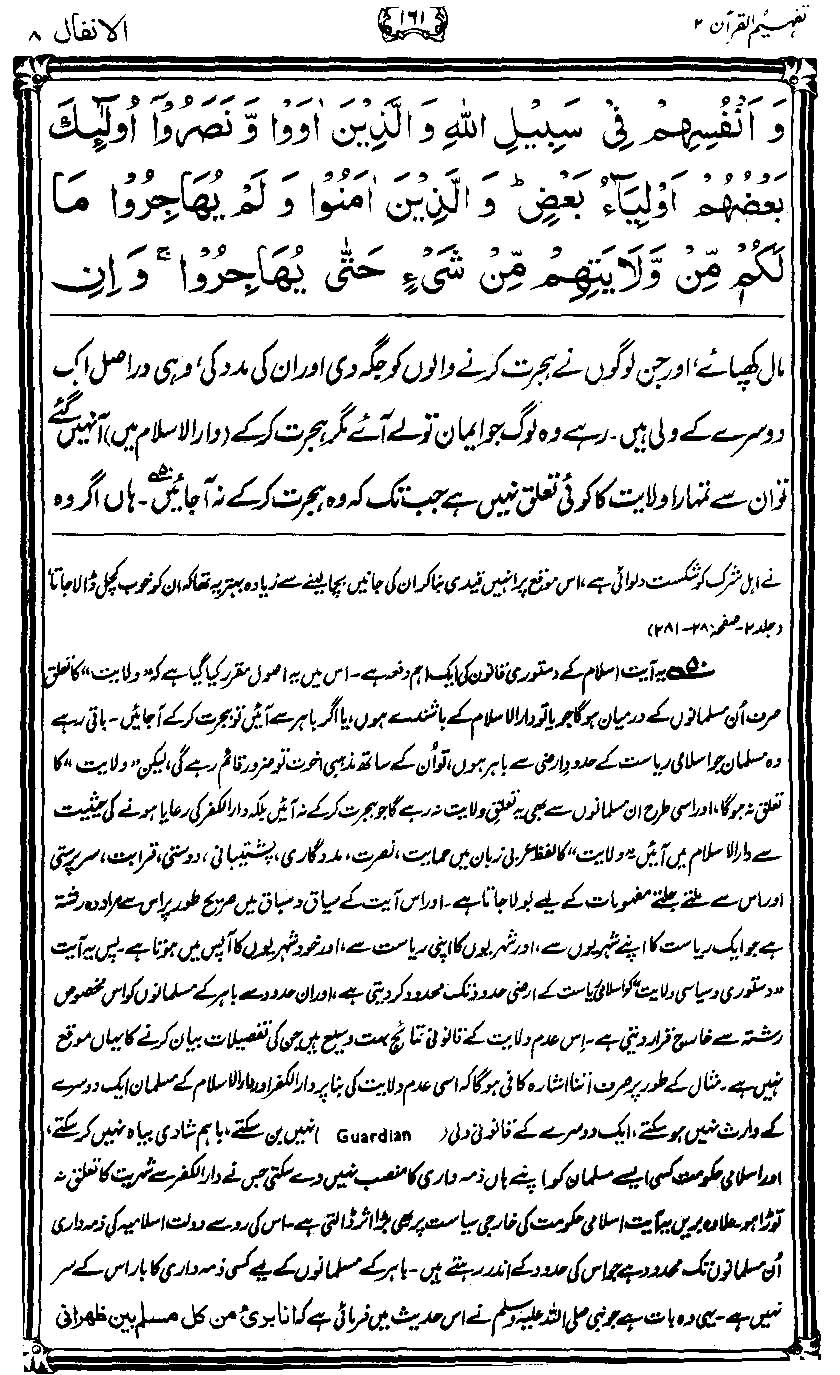 تفہیم القرآن ۲
۱۶۱
الانفال ۸
وَ اَنْفُسِهِمْ فِیْ سَبِیْلِ اللّٰهِ وَ الَّذِیْنَ اٰوَوْا وَّ نَصَرُوْۤا اُولٰٓئِكَ
بَعْضُهُمْ اَوْلِیَآءُ بَعْضٍ ؕ وَ الَّذِیْنَ اٰمَنُوْا وَ لَمْ یُهَاجِرُوْا مَا
لَكُمْ مِّنْ وَّلَایَتِهِمْ مِّنْ شَیْءٍ حَتّٰی یُهَاجِرُوْا ۚ وَ اِنِ
مال کھپائے، اور جن لوگوں نے ہجرت کرنے والوں کو جگہ دی اور ان کی مدد کی، وہی دراصل ایک
دوسرے کے ولی ہیں۔ رہے وہ لوگ جو ایمان تو لے آئے مگر ہجرت کر کے (دارالاسلام میں) آ نہیں گئے
تو ان سے تمہارا ولایت کا کوئی تعلق نہیں ہے جب تک کہ وہ ہجرت کر کے نہ آ جائیں۵۰۔ ہاں اگر وہ
نے اہل شرک کو شکست دلوائی ہے، اس موقع پر انہیں قیدی بنا کر ان کی جانیں بچا لینے سے زیادہ بہتر یہ تھا کہ ان کو خوب کچل ڈالا جاتا
(جلد ۲۔ صفحہ: ۲۸۰-۲۸۱)
۵۰ یہ آیت اسلام کے دستوری قانون کی ایک اہم دفعہ ہے۔ اس میں یہ اصول مقرر کیا گیا ہے کہ ”ولایت“ کا تعلق
صرف اُن مسلمانوں کے درمیان ہو گا جو یا تو دارالاسلام کے باشندے ہوں، یا اگر باہر سے آئیں تو ہجرت کر کے آ جائیں۔ باقی رہے
وہ مسلمان جو اسلامی ریاست کے حدودِ ارضی سے باہر ہوں، تو اُن کے ساتھ مذہبی اخوت تو ضرور قائم رہے گی، لیکن ”ولایت“ کا
تعلق نہ ہو گا، اور اسی طرح ان مسلمانوں سے بھی یہ تعلقِ ولایت نہ رہے گا جو ہجرت کر کے نہ آئیں بلکہ دارالکفر کی رعایا ہونے کی حیثیت
سے دارالاسلام میں آئیں۔ ”ولایت“ کا لفظ عربی زبان میں حمایت، نصرت، مددگاری، پشتیبانی، دوستی، قرابت، سرپرستی
اور اس سے ملتے جلتے مفہومات کے لیے بولا جاتا ہے۔ اور اس آیت کے سیاق و سباق میں صریح طور پر اس سے مراد وہ رشتہ
ہے جو ایک ریاست کا اپنے شہریوں سے، اور شہریوں کا اپنی ریاست سے، اور خود شہریوں کا آپس میں ہوتا ہے۔ پس یہ آیت
”دستوری و سیاسی ولایت“ کو اسلامی ریاست کے ارضی حدود تک محدود کر دیتی ہے، اور ان حدود سے باہر کے مسلمانوں کو اس مخصوص
رشتہ سے خارج قرار دیتی ہے۔ اِس عدم ولایت کے قانونی نتائج بہت وسیع ہیں جن کی تفصیلات بیان کرنے کا یہاں موقع
نہیں ہے۔ مثال کے طور پر صرف اتنا اشارہ کافی ہو گا کہ اسی عدم ولایت کی بنا پر دارالکفر اور دارالاسلام کے مسلمان ایک دوسرے
کے وارث نہیں ہو سکتے، ایک دوسرے کے قانونی ولی (Guardian) نہیں بن سکتے، باہم شادی بیاہ نہیں کر سکتے،
اور اسلامی حکومت کسی ایسے مسلمان کو اپنے ہاں ذمہ داری کا منصب نہیں دے سکتی جس نے دارالکفر سے شہریت کا تعلق نہ
توڑا ہو۔ علاوہ بریں یہ آیت اسلامی حکومت کی خارجی سیاست پر بھی بڑا اثر ڈالتی ہے۔ اس کی رو سے دولت اسلامیہ کی ذمہ داری
اُن مسلمانوں تک محدود ہے جو اس کی حدود کے اندر رہتے ہیں۔ باہر کے مسلمانوں کے لیے کسی ذمہ داری کا بار اس کے سر
نہیں ہے۔ یہی وہ بات ہے جو نبی صلی اللہ علیہ وسلم نے اس حدیث میں فرمائی ہے کہ انا بریءٌ من کل مسلم بین ظھرانی